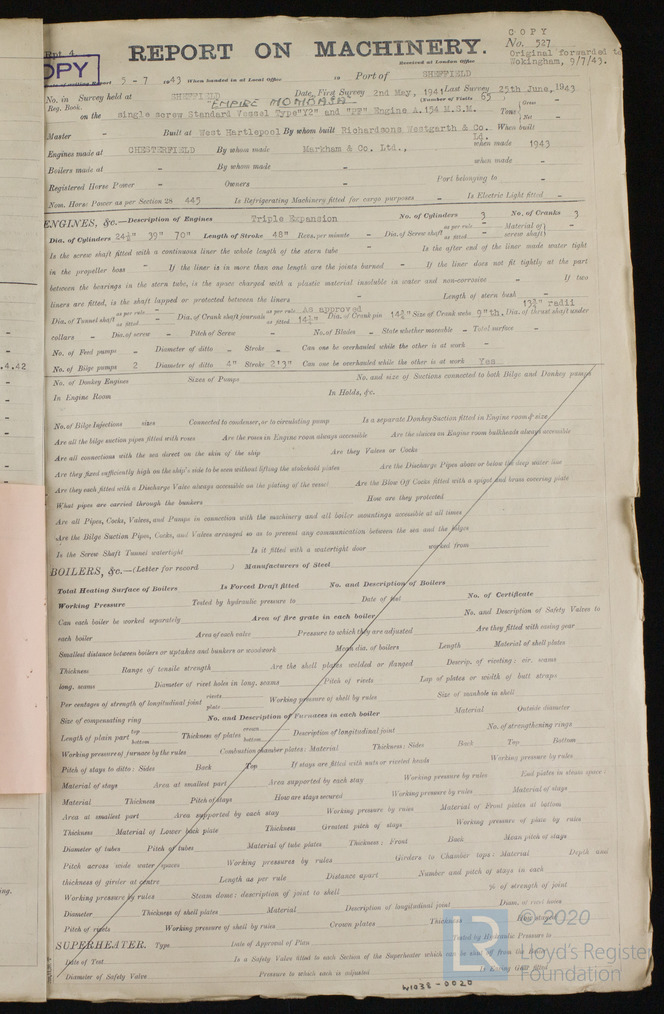 COPY
No. 527
Original forwarded to
Wokingham, 9/7/43.
Rpt. 4.
OPY
REPORT ON MACHINERY.
Received at London Office
Date of writing Report 5 - 7 1943 When handed in at Local Office 19 Port of SHEFFIELD
No. in Survey held at SHEFFIELD Date, First Survey 2nd May, 1941 Last Survey 25th June, 1943
Reg. Book. "EMPIRE MOMBASA" (Number of Visits 63)
on the single screw Standard Vessel Type"Y2" and "PF" Engine A.154 M.S.M. Tons Gross Net
Master - Built at West Hartlepool By whom built Richardsons Westgarth & Co. Ld. When built
Engines made at CHESTERFIELD By whom made Markham & Co. Ltd., when made 1943
Boilers made at - By whom made - when made -
Registered Horse Power - Owners - Port belonging to -
Nom. Horse Power as per Section 28 445 Is Refrigerating Machinery fitted for cargo purposes - Is Electric Light fitted -
ENGINES, &c.—Description of Engines Triple Expansion No. of Cylinders 3 No. of Cranks 3
Dia. of Cylinders 24½" 39" 70" Length of Stroke 48" Revs. per minute - Dia. of Screw shaft as per rule as fitted - Material of screw shaft -
Is the screw shaft fitted with a continuous liner the whole length of the stern tube - Is the after end of the liner made water tight
in the propeller boss - If the liner is in more than one length are the joints burned - If the liner does not fit tightly at the part
between the bearings in the stern tube, is the space charged with a plastic material insoluble in water and non-corrosive - If two
liners are fitted, is the shaft lapped or protected between the liners - Length of stern bush -
Dia. of Tunnel shaft as per rule as fitted - Dia. of Crank shaft journals as per rule As approved as fitted 14½" Dia. of Crank pin 14½" Size of Crank webs 9"th. Dia. of thrust shaft under 13¾" radii
collars - Dia. of screw - Pitch of Screw - No. of Blades - State whether moveable - Total surface -
No. of Feed pumps - Diameter of ditto - Stroke - Can one be overhauled while the other is at work -
No. of Bilge pumps 2 Diameter of ditto 4" Stroke 2'3" Can one be overhauled while the other is at work Yes
No. of Donkey Engines Sizes of Pumps No. and size of Suctions connected to both Bilge and Donkey pumps
In Engine Room In Holds, &c.
No. of Bilge Injections sizes Connected to condenser, or to circulating pump Is a separate Donkey Suction fitted in Engine room & size
Are all the bilge suction pipes fitted with roses Are the roses in Engine room always accessible Are the sluices on Engine room bulkheads always accessible
Are all connections with the sea direct on the skin of the ship Are they Valves or Cocks
Are they fixed sufficiently high on the ship's side to be seen without lifting the stokehold plates Are the Discharge Pipes above or below the deep water line
Are they each fitted with a Discharge Valve always accessible on the plating of the vessel Are the Blow Off Cocks fitted with a spigot and brass covering plate
What pipes are carried through the bunkers How are they protected
Are all Pipes, Cocks, Valves, and Pumps in connection with the machinery and all boiler mountings accessible at all times
Are the Bilge Suction Pipes, Cocks, and Valves arranged so as to prevent any communication between the sea and the bilges
Is the Screw Shaft Tunnel watertight Is it fitted with a watertight door worked from
BOILERS, &c.—(Letter for record ) Manufacturers of Steel
Total Heating Surface of Boilers Is Forced Draft fitted No. and Description of Boilers
Working Pressure Tested by hydraulic pressure to Date of test No. of Certificate
Can each boiler be worked separately Area of fire grate in each boiler No. and Description of Safety Valves to
each boiler Area of each valve Pressure to which they are adjusted Are they fitted with easing gear
Smallest distance between boilers or uptakes and bunkers or woodwork Mean dia. of boilers Length Material of shell plates
Thickness Range of tensile strength Are the shell plates welded or flanged Descrip. of riveting: cir. seams
long. seams Diameter of rivet holes in long. seams Pitch of rivets Lap of plates or width of butt straps
Per centages of strength of longitudinal joint rivets plate Working pressure of shell by rules Size of manhole in shell
Size of compensating ring No. and Description of Furnaces in each boiler Material Outside diameter
Length of plain part top bottom Thickness of plates crown bottom Description of longitudinal joint No. of strengthening rings
Working pressure of furnace by the rules Combustion chamber plates: Material Thickness: Sides Back Top Bottom
Pitch of stays to ditto: Sides Back Top If stays are fitted with nuts or riveted heads Working pressure by rules
Material of stays Area at smallest part Area supported by each stay Working pressure by rules End plates in steam space:
Material Thickness Pitch of stays How are stays secured Working pressure by rules Material of stays
Area at smallest part Area supported by each stay Working pressure by rules Material of Front plates at bottom
Thickness Material of Lower back plate Thickness Greatest pitch of stays Working pressure of plate by rules
Diameter of tubes Pitch of tubes Material of tube plates Thickness: Front Back Mean pitch of stays
Pitch across wide water spaces Working pressures by rules Girders to Chamber tops: Material Depth and
thickness of girder at centre Length as per rule Distance apart Number and pitch of stays in each
Working pressure by rules Steam dome: description of joint to shell % of strength of joint
Diameter Thickness of shell plates Material Description of longitudinal joint Diam. of rivet holes
Pitch of rivets Working pressure of shell by rules Crown plates Thickness How stayed
SUPERHEATER. Type Date of Approval of Plan Tested by Hydraulic Pressure to
Date of Test Is a Safety Valve fitted to each Section of the Superheater which can be shut off from the Boiler
Diameter of Safety Valve Pressure to which each is adjusted Is Easing Gear fitted
W1038-0020
.4.42
ing,
LR
© 2020
Lloyd's Register
Foundation